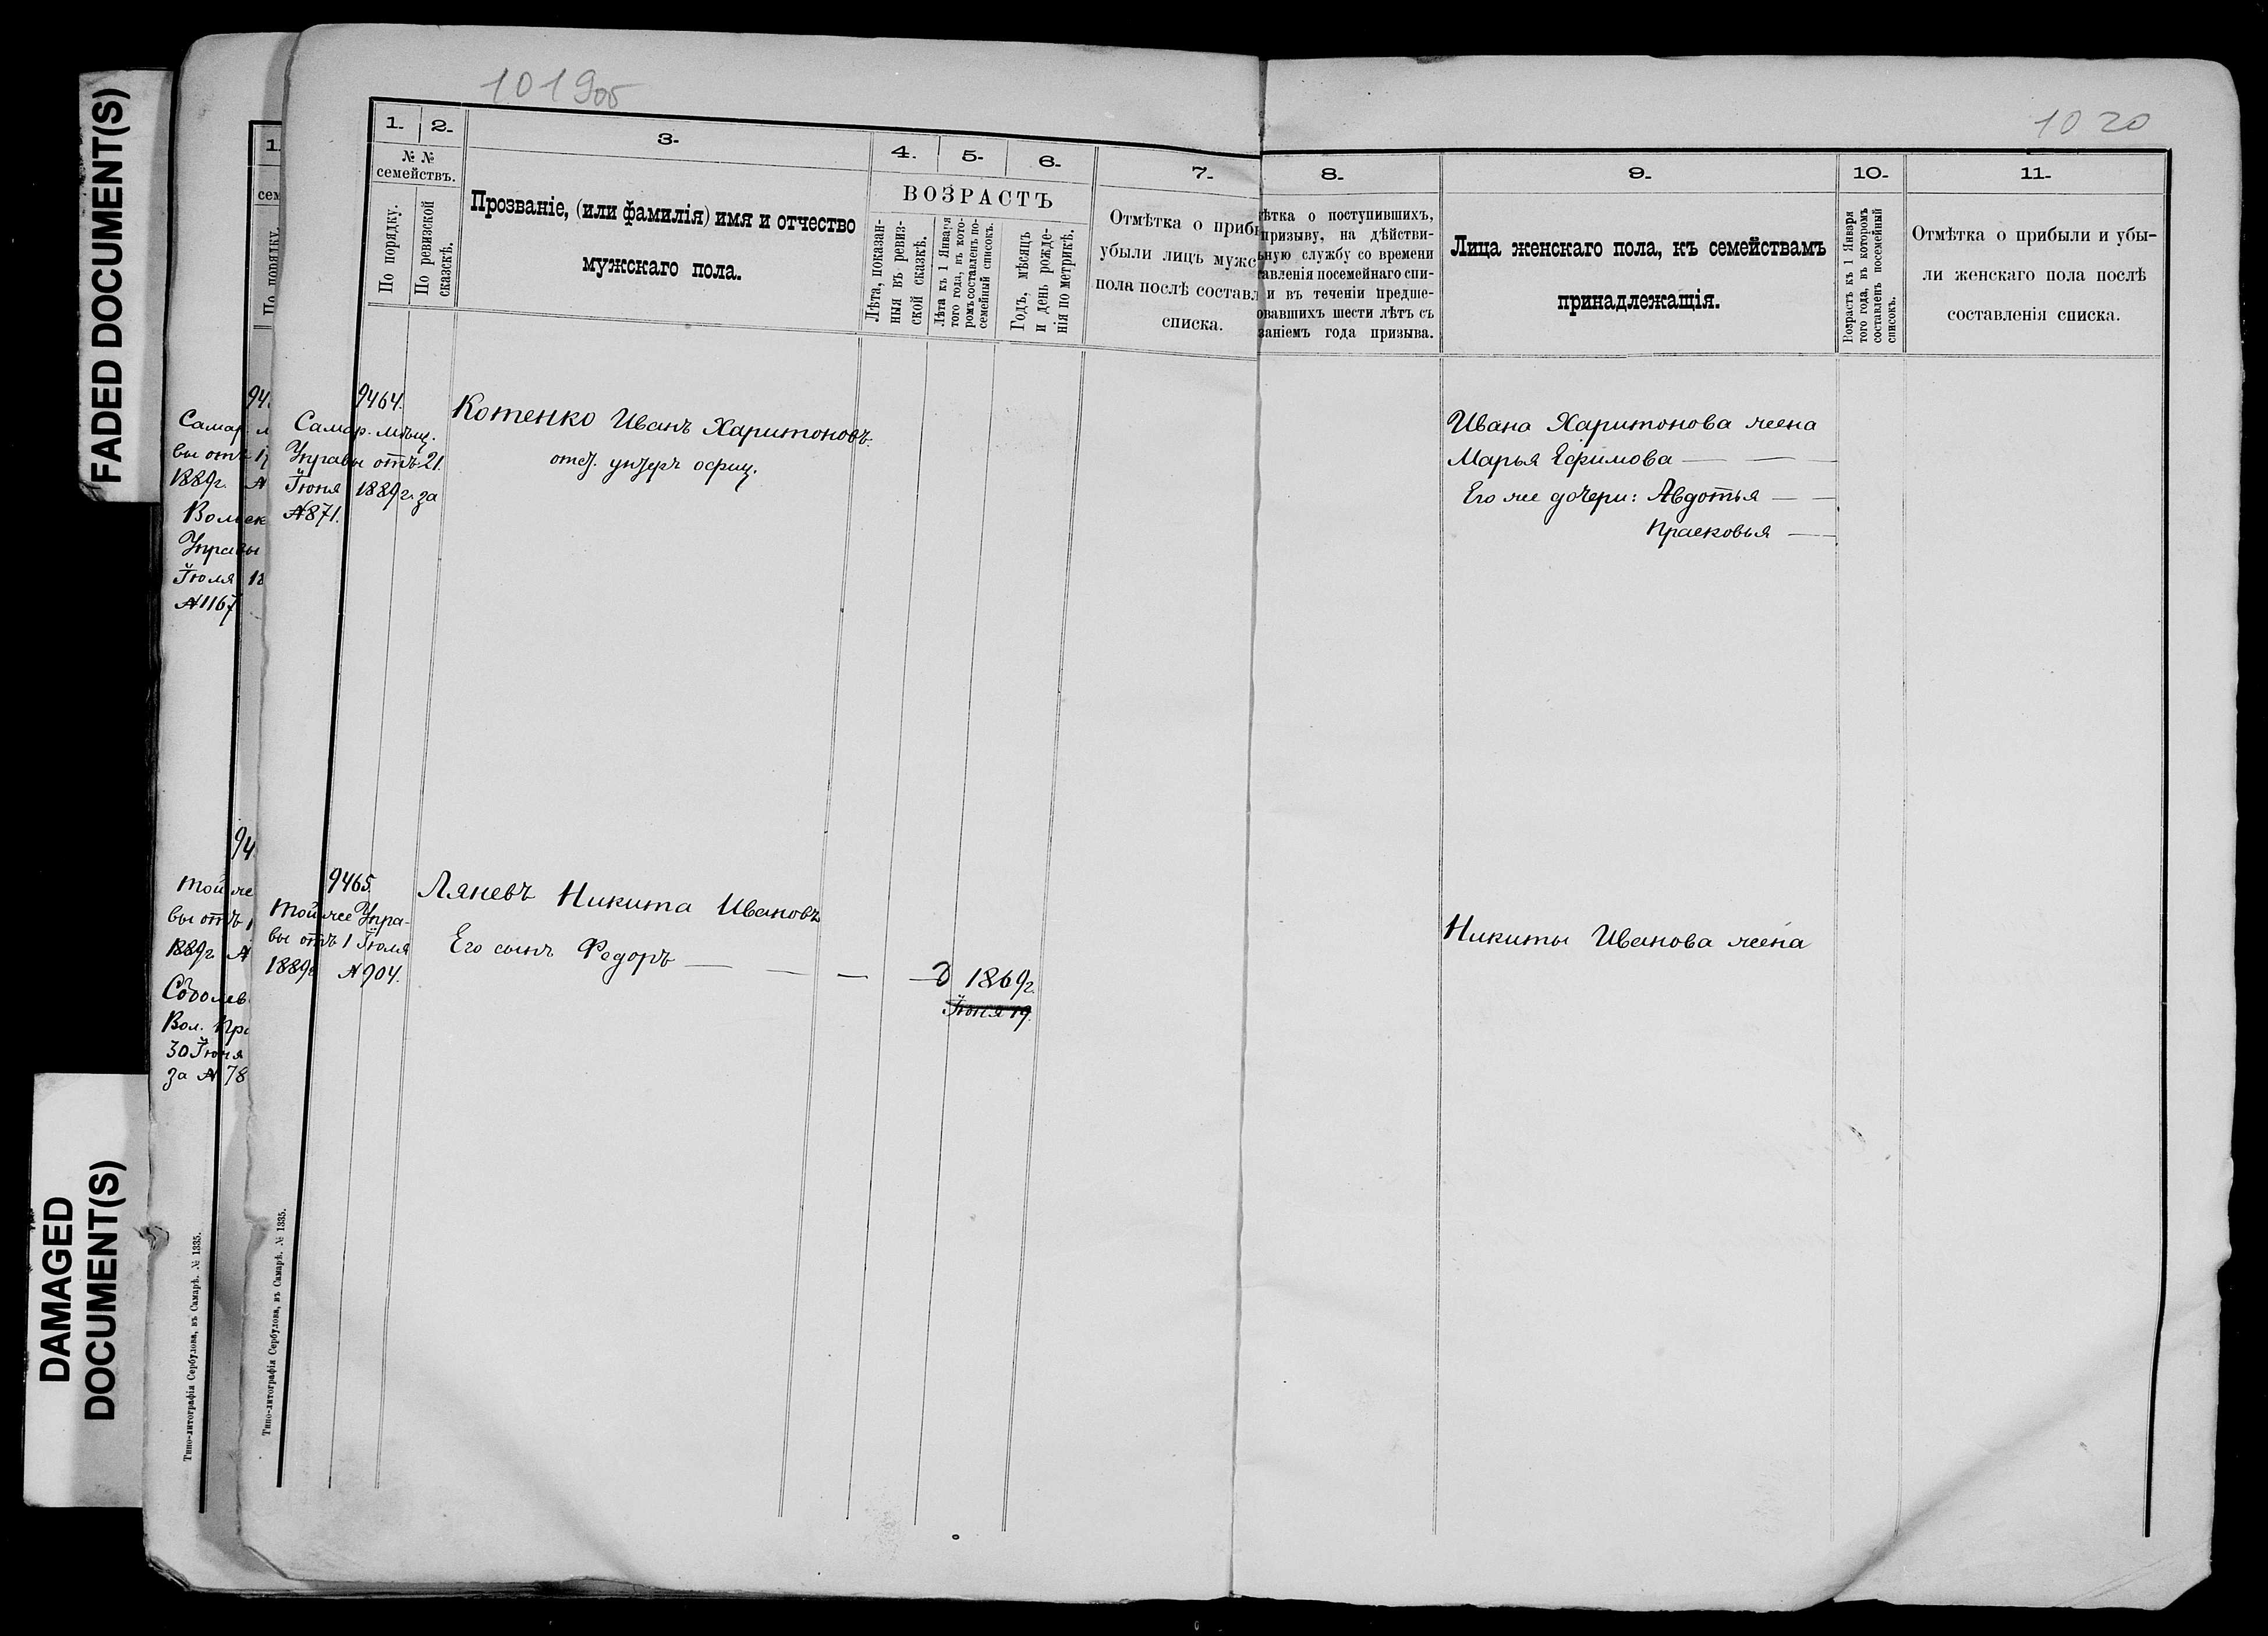 FADED DOCUMENT(S)
DAMAGED
DOCUMENT(S)
1019об
1020
1. 2. 3. 4. 5. 6. 7.
№ № семействъ.
По порядку.
По ревизской сказскѣ.
Прозваніе, (или фамилія) имя и отчество
мужскаго пола.
ВОЗРАСТЪ
Лѣта, показан-
ныя въ ревиз-
ской сказкѣ.
Лѣта къ 1 Января
того года, въ кото-
ромъ составленъ по-
семейный списокъ.
Годъ, мѣсяцъ
и день рожде-
нія по метрикѣ.
Отмѣтка о приб
убыли лицъ мужс
пола послѣ составл
списка.
8. 9. 10. 11.
ѣтка о поступившихъ,
призыву, на дѣйстви-
ьную службу со времени
авленія посемейнаго спи-
и въ теченіи предше-
овавшихъ шести лѣтъ съ
заніемъ года призыва.
Лица женскаго пола, къ семействамъ
принадлежащія.
Возрастъ къ 1 Января
того года, въ которомъ
составленъ посемейный
списокъ.
Отмѣтка о прибыли и убы-
ли женскаго пола послѣ
составленія списка.
9464.
Самар. мѣщ.
Управы отъ 21.
Іюня 1889 г. за
№ 871.
Котенко Иванъ Харитоновъ.
отст. унтеръ офиц.
Ивана Харитонова жена
Марья Ефимова
Его же дочери: Авдотья
Прасковья
9465.
Той же Упра-
вы отъ 1 Іюля
1889г № 904.
Ляневъ Никита Ивановъ
Его сынъ Федоръ
1869г.
Іюня 19.
Никиты Иванова жена
Самар
вы отъ 17
1889г. №
Вольск
Управы
Іюля 18
№ 1167
Той же
вы отъ 1
1889г №
Соболев
Вол. Пра
30 Іюня
за № 78
Типо-литографія Сербулова, въ Самарѣ. № 1335.
Типо-литографія Сербулова, въ Самарѣ. № 1335.